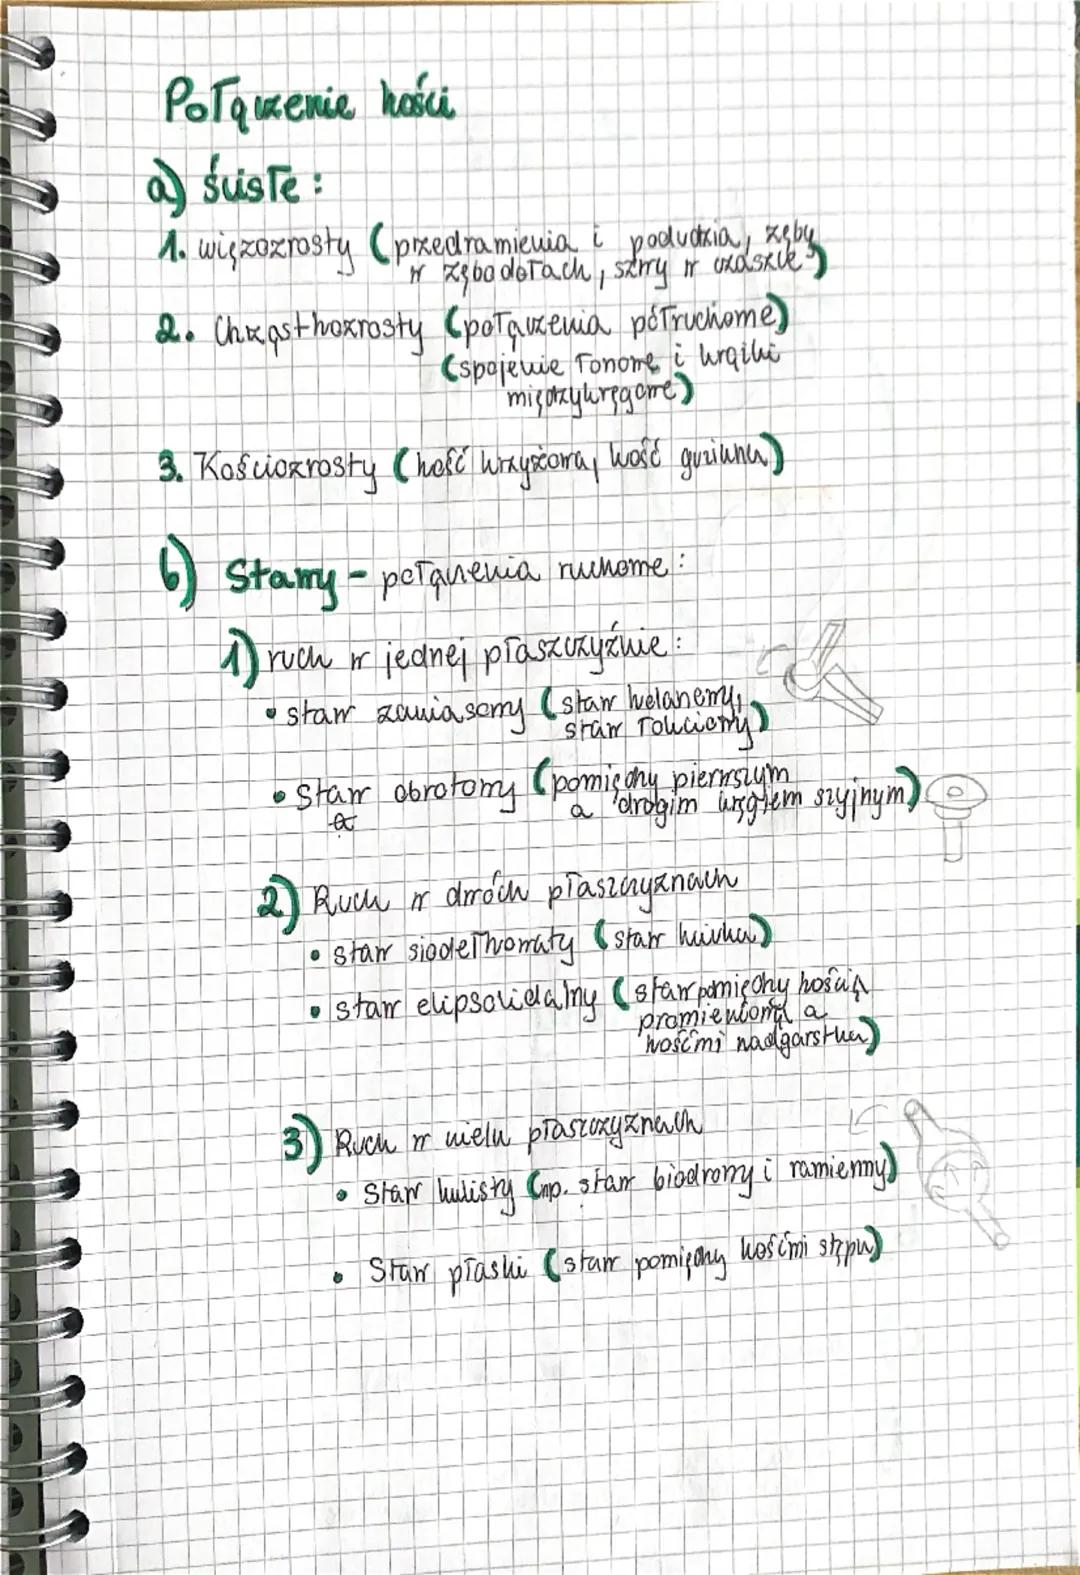 Połączenie kości
a) ścisłe:
1. więzozrosty (przedramienia i podudzia, zęby
w zębodołach, szwy w czaszce)
2. Chrząstkozrosty (połączenia półruchome)
(spojenie łonowe i krążki
międzykręgowe)
3. Kościozrosty (kość krzyżowa, kość guziczna)
b) Stawy - połączenia ruchome:
1) ruch w jednej płaszczyźnie:
• staw zawiasowy (staw kolanowy,
staw łokciowy)
• Staw obrotowy (pomiędzy pierwszym
a drugim kręgiem szyjnym)
2) Ruch w dwóch płaszczyznach
• staw siodełkowaty (staw kciuka)
• staw elipsoidalny (staw pomiędzy kością
promieniową a
kośćmi nadgarstka)
3) Ruch w wielu płaszczyznach
• Staw kulisty (np. staw biodrowy i ramienny)
• Staw płaski (staw pomiędzy kośćmi stępu)